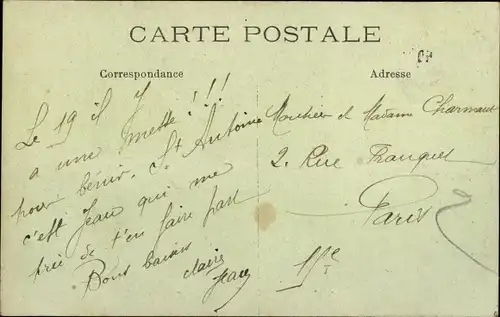 CARTE POSTALE
Correspondance
Adresse
Le 19 il Y
a une messe !!!
pour bénir St Antoine
c'est Jean qui me
prie de t'en faire part
Bons baisers
Claire
Jean
Monsieur et Madame Charmant
2. Rue Franquet
Paris
15e